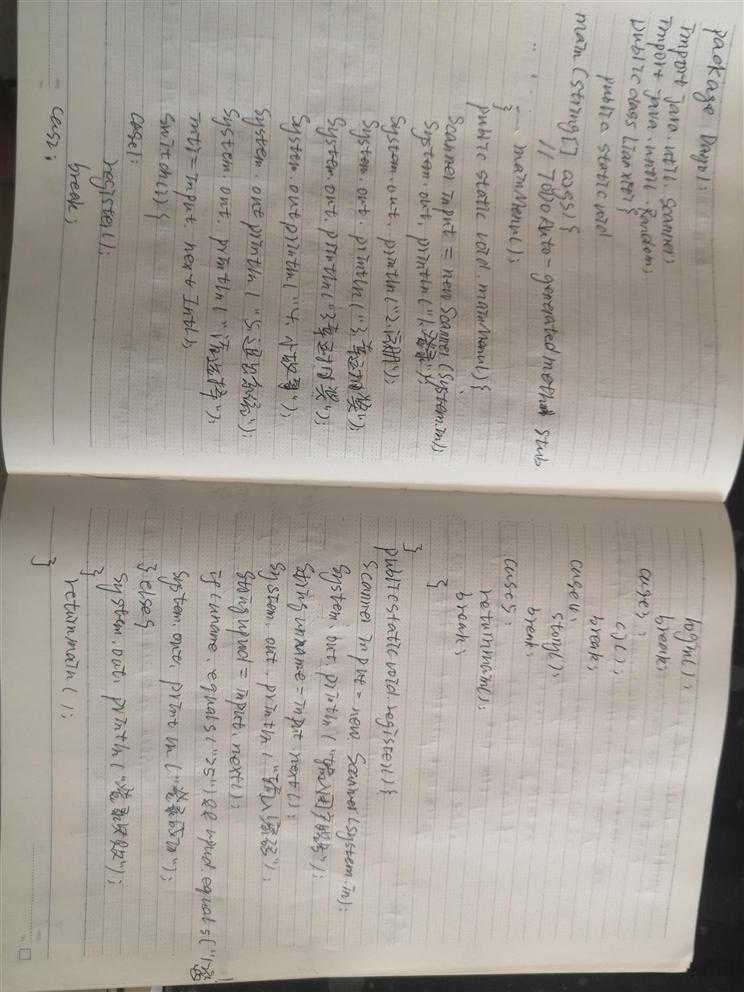 package Day01;
Import java.until.Scanner;
Import java.until.Random;
public class Lianxi1{
public static void
main(string[] args){
// TODO Auto-generated method stub
mainMenu();
}
public static void mainMenu(){
Scanner Input = new Scanner(System.in);
System.out.println("1.登录");
System.out.println("2.注册");
System.out.println("3.幸运抽奖");
System.out.println("3.幸运抽奖");
System.out.println("4.
System.out.println("5.退出系统");
System.out.println("请选择");
Int i=Input.nextInt();
switch(i){
case1:
register();
break;
case2:
login();
break;
case3:
cj();
break;
case4:
break;
case5:
returnmain();
break;
}
}
public static void register(){
Scanner Input = new Scanner(System.in);
System.out.println("请输入用户名");
String uname=Input.next();
System.out.println("请输入密码");
String upwd=Input.next();
if(uname.equals("zs")&& upwd equals("123
System.out.println("登录成功");
}else{
System.out.println("登录失败");
}
returnmain();
}